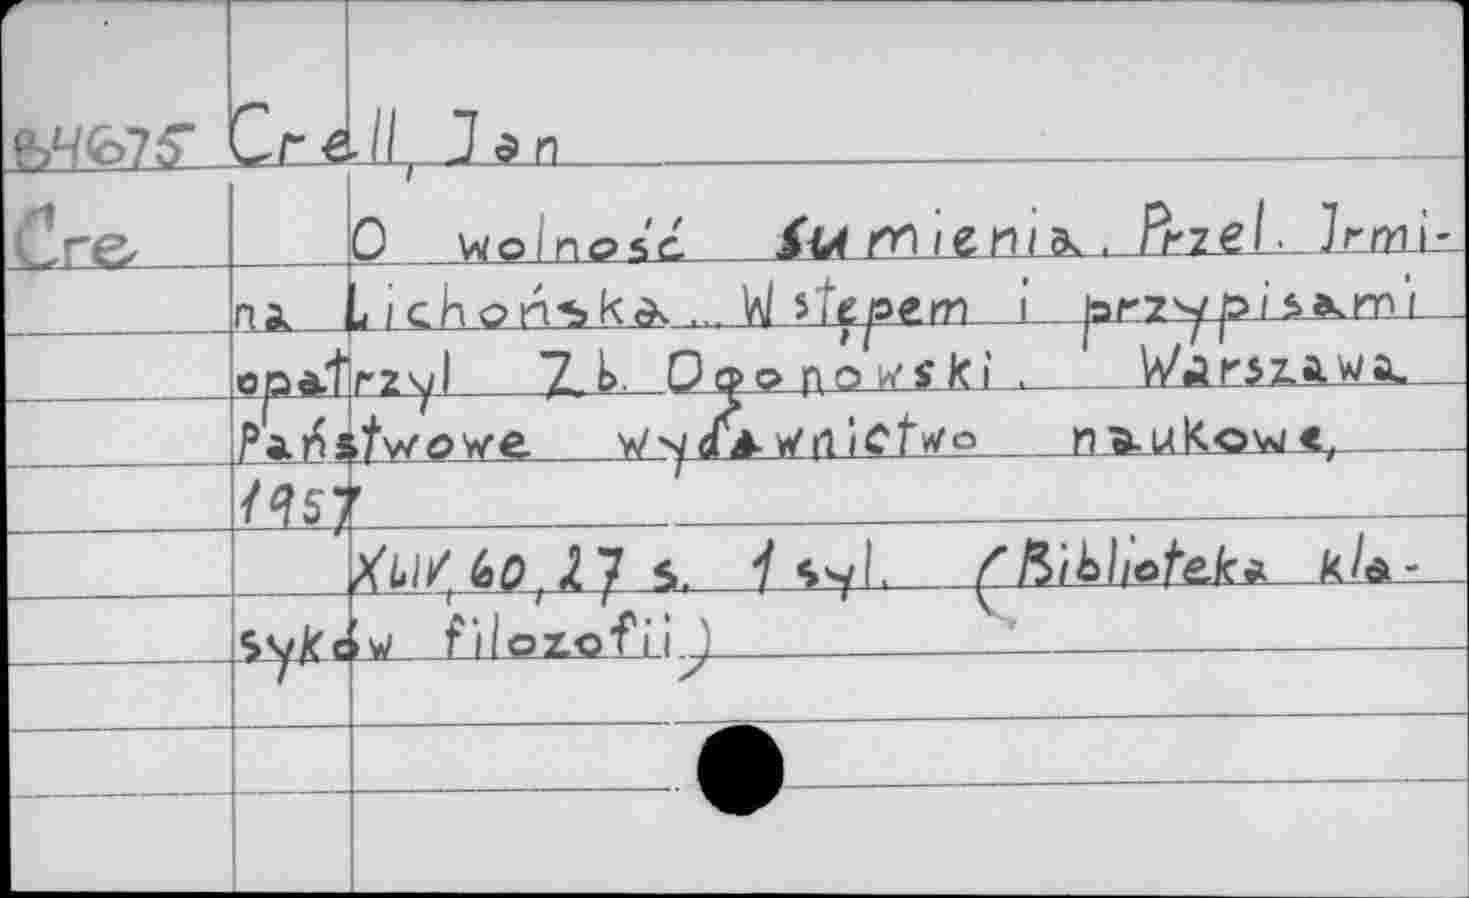 B4675 Crell, Jan
Cre O wolność sumienia. Przeł. Irmi-
na Lichońska... Wstępem i przypisami
opatrzył Z.k. Ogonowski. Warszawa.
Państwowe Wydawnictwo naukowe,
1957
XLIV, 60, 27 s. 1 syl. (Biblioteka kla-
syków filozofii)